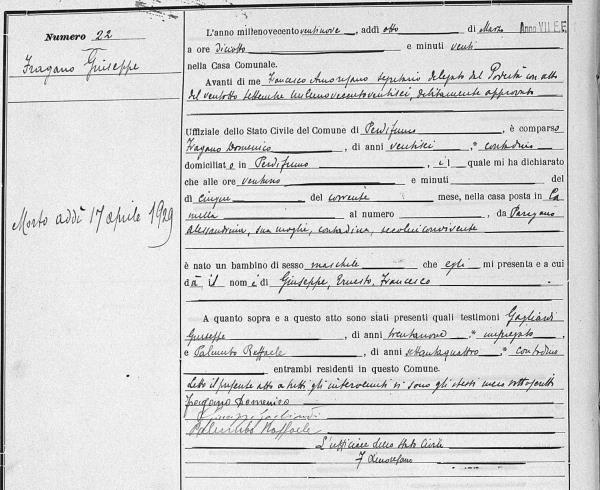 Numero 22
Fragano Giuseppe
Morto addì 17 aprile 1929
Anno VII E.F.
L'anno millenovecentoventinove, addì otto di Marzo
a ore Diciotto e minuti venti
nella Casa Comunale.
Avanti di me Francesco Amoresano segretario delegato del Podestà con atto
del ventotto settembre millenovecentoventisei, debitamente approvato
Uffiziale dello Stato Civile del Comune di Perdifumo, è comparso
Fragano Domenico, di anni ventisei, contadino
domiciliato in Perdifumo, il quale mi ha dichiarato
che alle ore ventuno e minuti del
dì cinque del corrente mese, nella casa posta in Ca
mella al numero, da
Alessandrina, sua moglie, contadina, secolui convivente
è nato un bambino di sesso maschile che egli mi presenta e a cui
dà il nome di Giuseppe, Ernesto, Francesco
A quanto sopra e a questo atto sono stati presenti quali testimoni Gagliardi
Giuseppe, di anni trentanove, impiegato,
e Palumbo Raffaele, di anni settantaquattro, contadino
entrambi residenti in questo Comune.
Letto il presente atto a tutti gli intervenuti si sono gli stessi meco sottoscritti
Fragano Domenico
Giuseppe Gagliardi
Palumbo Raffaele
L'ufficiale dello Stato Civile
F Amoresano